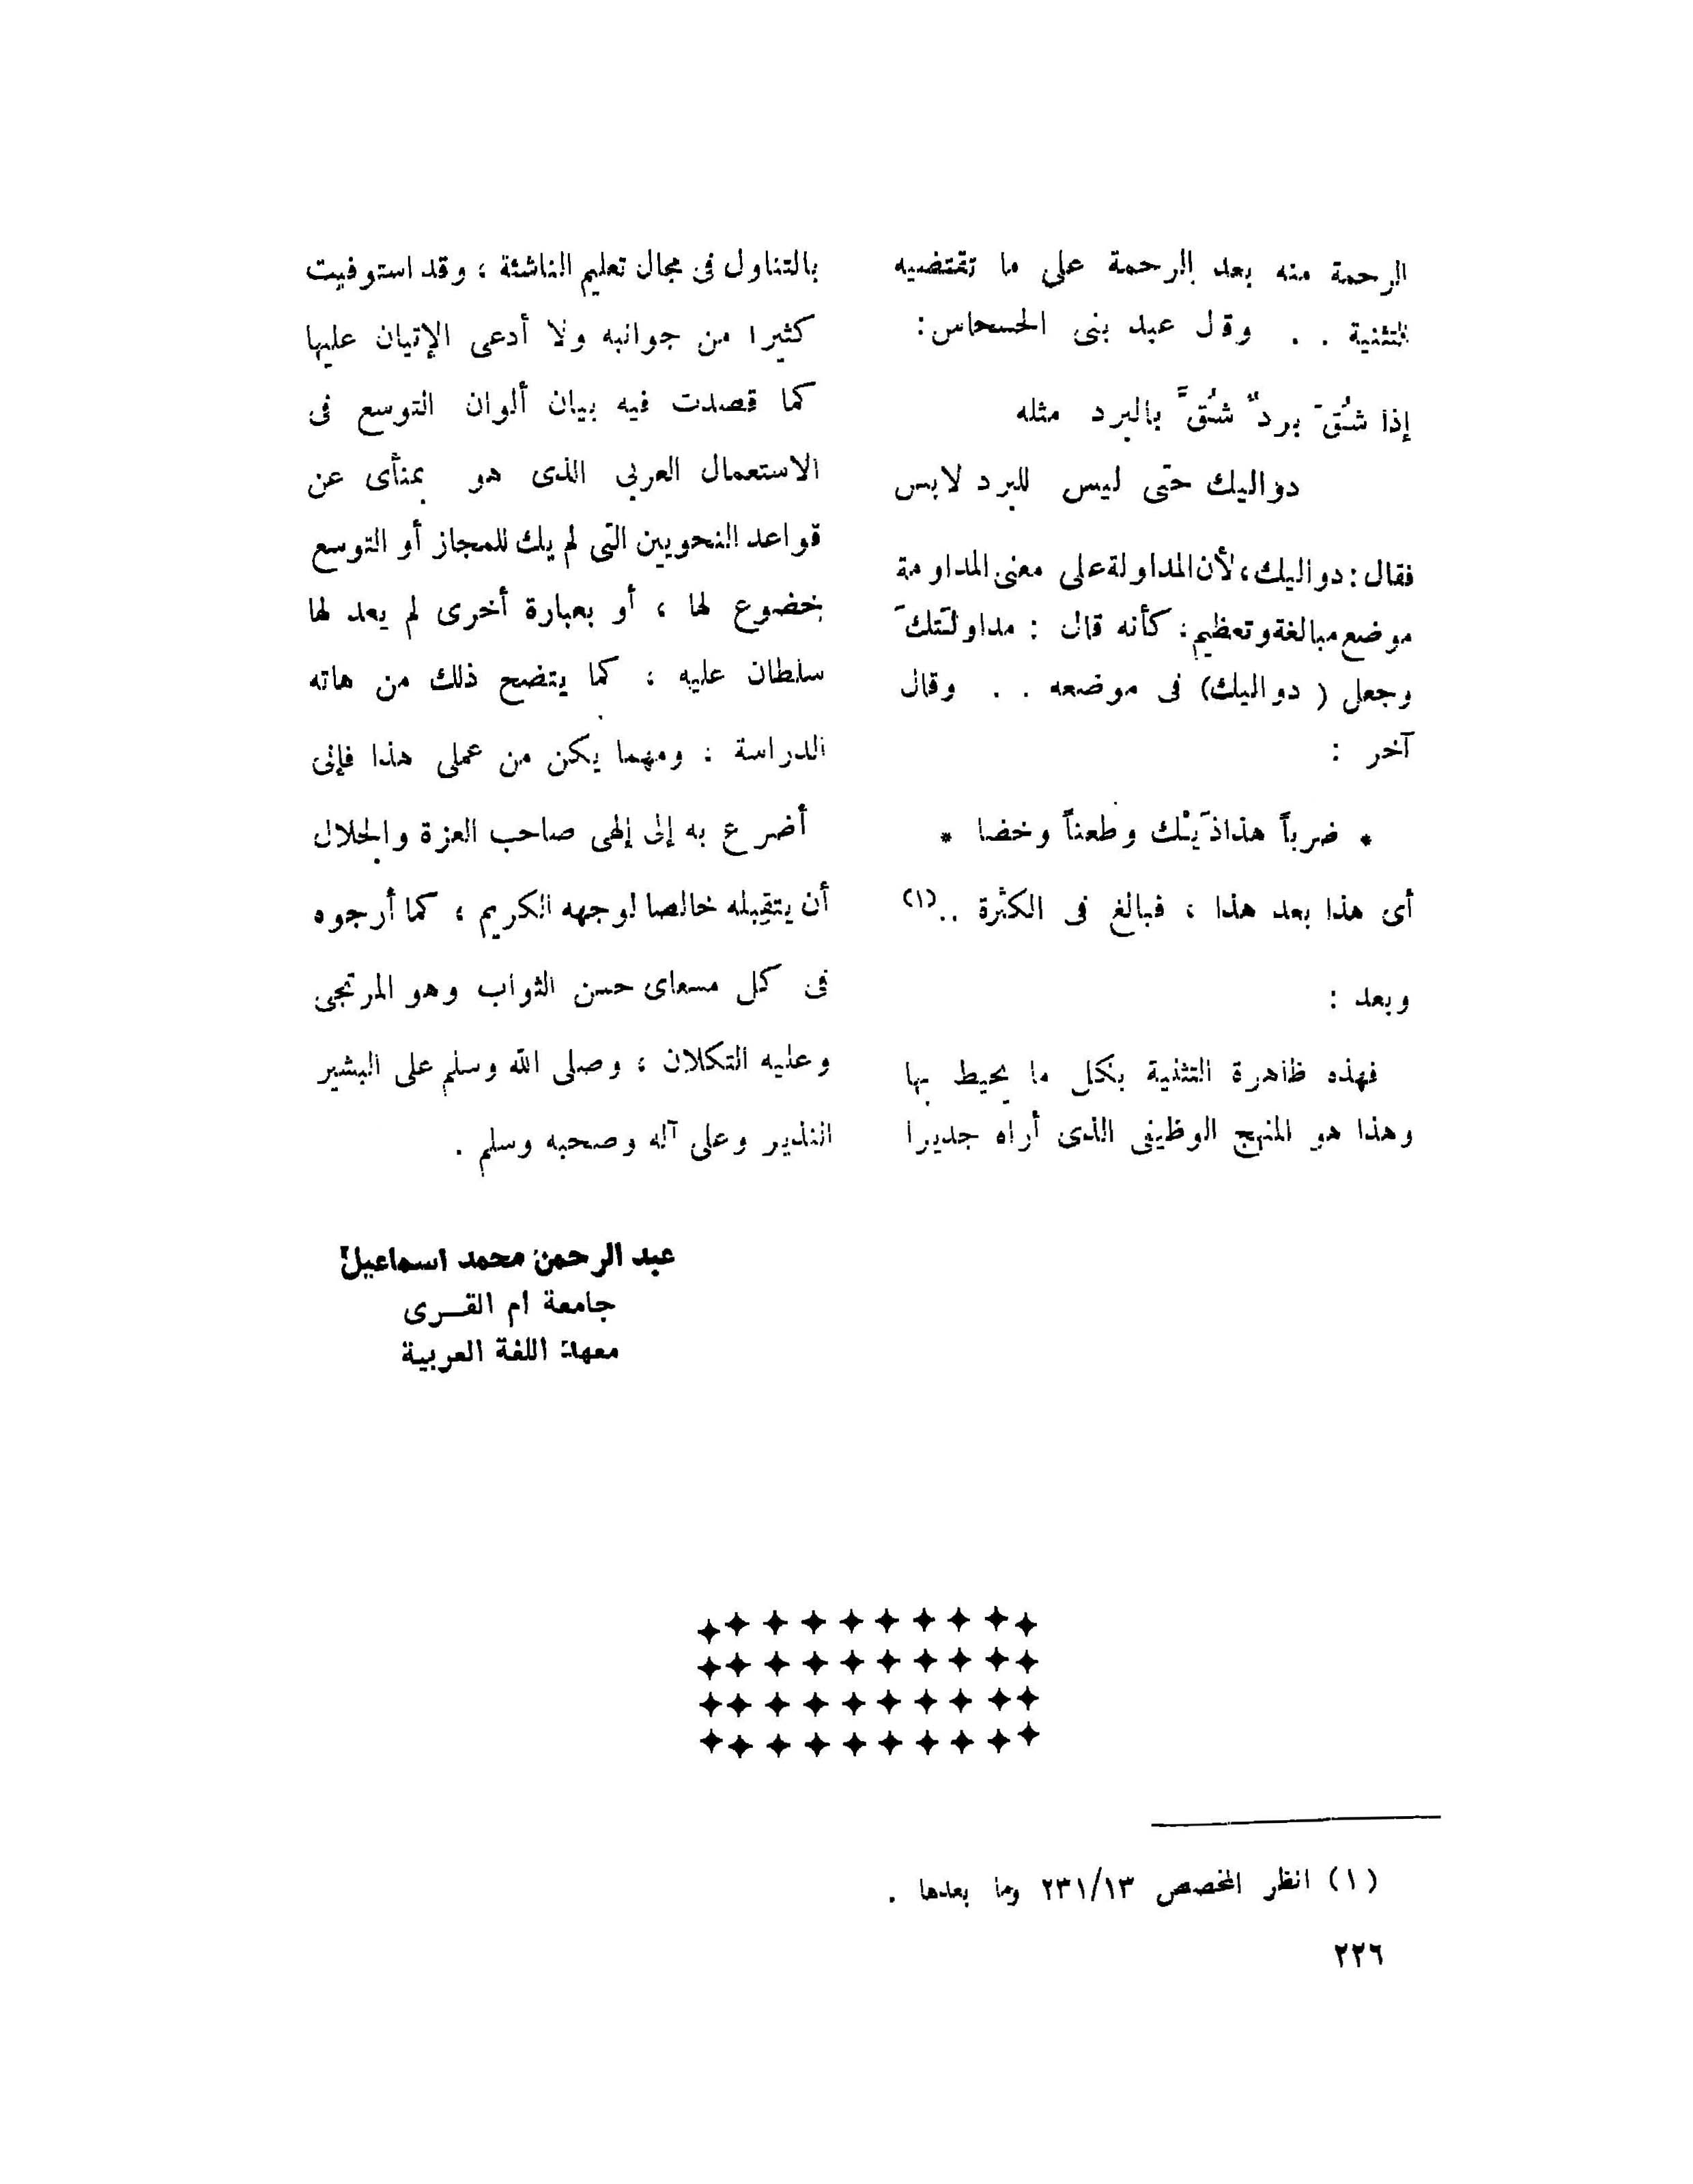 الرحمة منه بعد الرحمة على ما تقتضيه
التثنية . . وقل عبد بنى الحسحاس :
إذا شُقَّ بردٌ شُقَّ بالبرد مثله
دواليك حتى ليس للبرد لابس
فقال : دواليك ، لأن المداولة على معنى المداومة
موضع مبالغة وتعظيم ، كأنه قال : مداولتَك
وجعل ( دواليك ) فى موضعه . . وقال
آخر :
* ضرباً هذاذَيْك وطعناً وخضا *
أى هذا بعد هذا ، فبالغ فى الكثرة ..(١)
وبعد :
فهذه ظاهرة التثنية بكل ما يحيط بها
وهذا هو المنهج الوظيفى الذى أراه جديرا
بالتناول فى مجال تعليم الناشئة ، وقد استوفيت
كثيرا من جوانبه ولا أدعى الإتيان عليها
كما قصدت فيه بيان ألوان التوسع فى
الاستعمال العربى الذى هو بمنأى عن
قواعد النحويين التى لم يك للمجاز أو التوسع
خضوع لها ، أو بعبارة أخرى لم يعد لها
سلطان عليه ، كما يتضح ذلك من هاته
الدراسة : ومهما يكن من عملى هذا فإنى
أضرع به إلى إلهى صاحب العزة والجلال
أن يتقبله خالصا لوجهه الكريم ، كما أرجوه
فى كل مسعاى حسن الثواب وهو المرتجى
وعليه التكلان ، وصلى الله وسلم على البشير
النذير وعلى آله وصحبه وسلم .
عبد الرحمن محمد اسماعيل
جامعة ام القــرى
معهد اللغة العربية
(١) انظر المخصص ٢٣١/١٣ وما بعدها .
٢٢٦